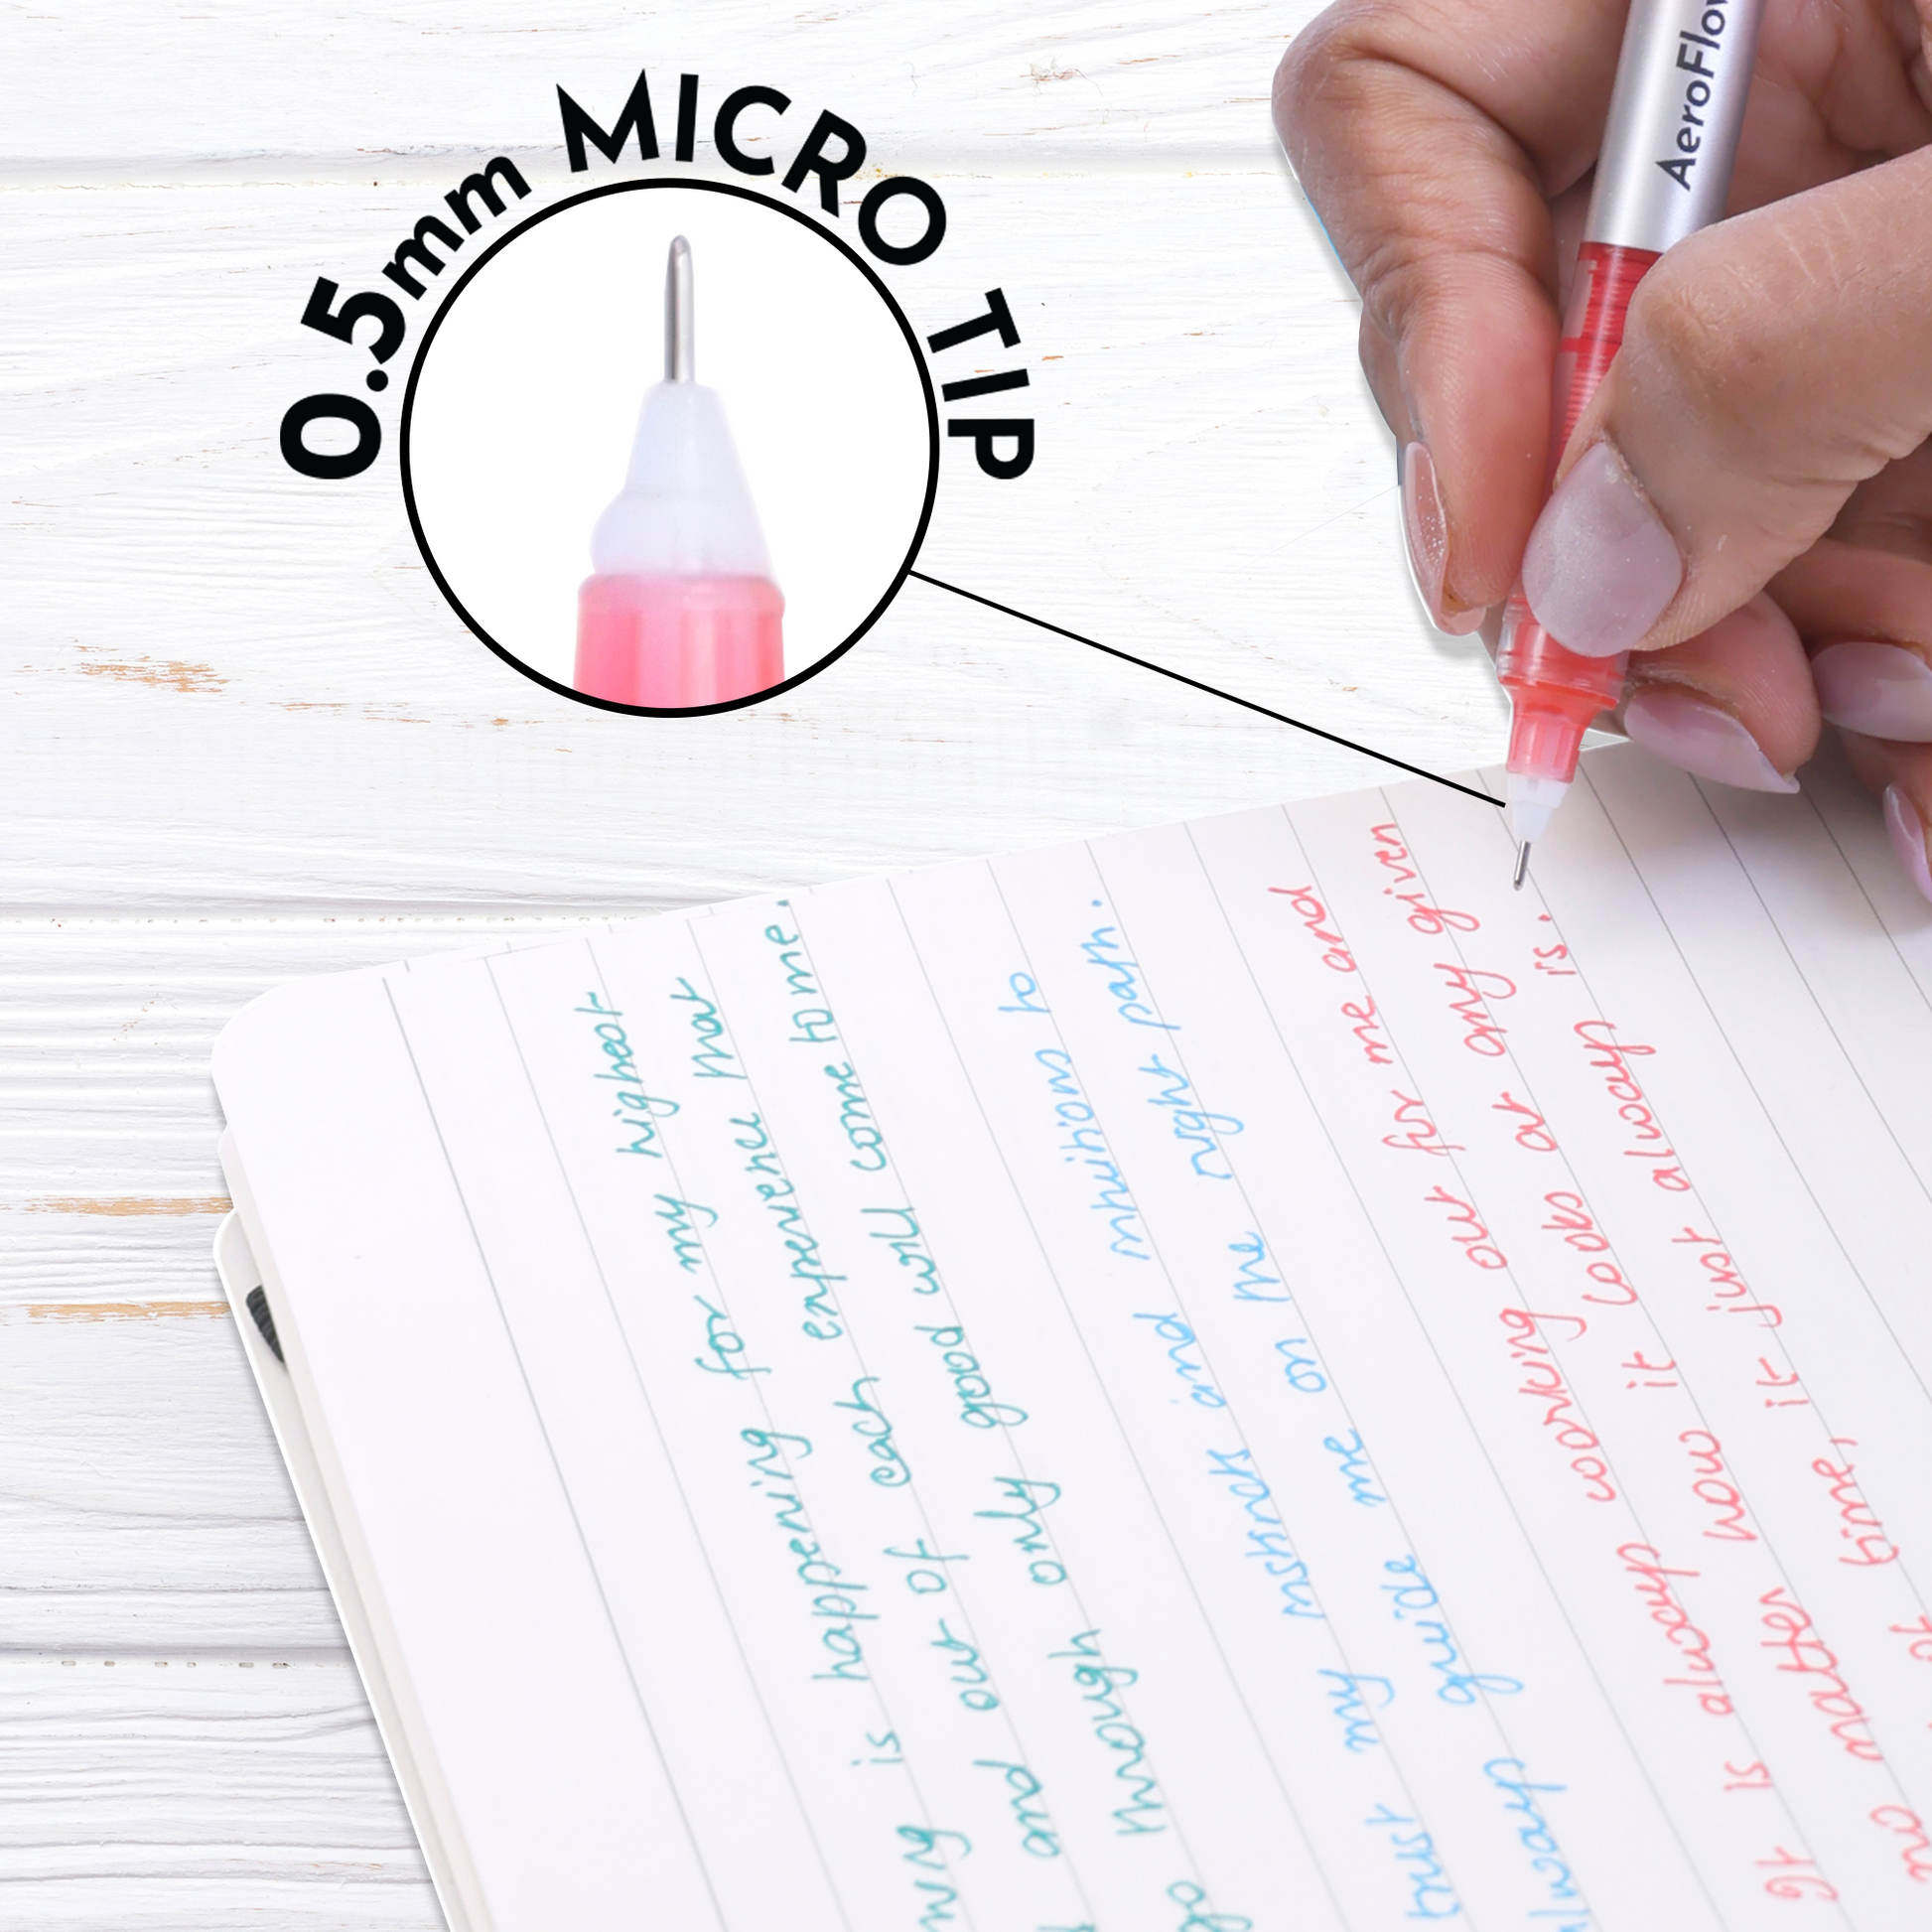 0.5mm MICRO TIP
AeroFlow
is happening for my highest
and out of each experience that
go through only good will come to me.
trust my instincts and intuitions to
always guide me on the right path.
It is always working out for me and
no matter how it looks at any given
of time, it just always is.